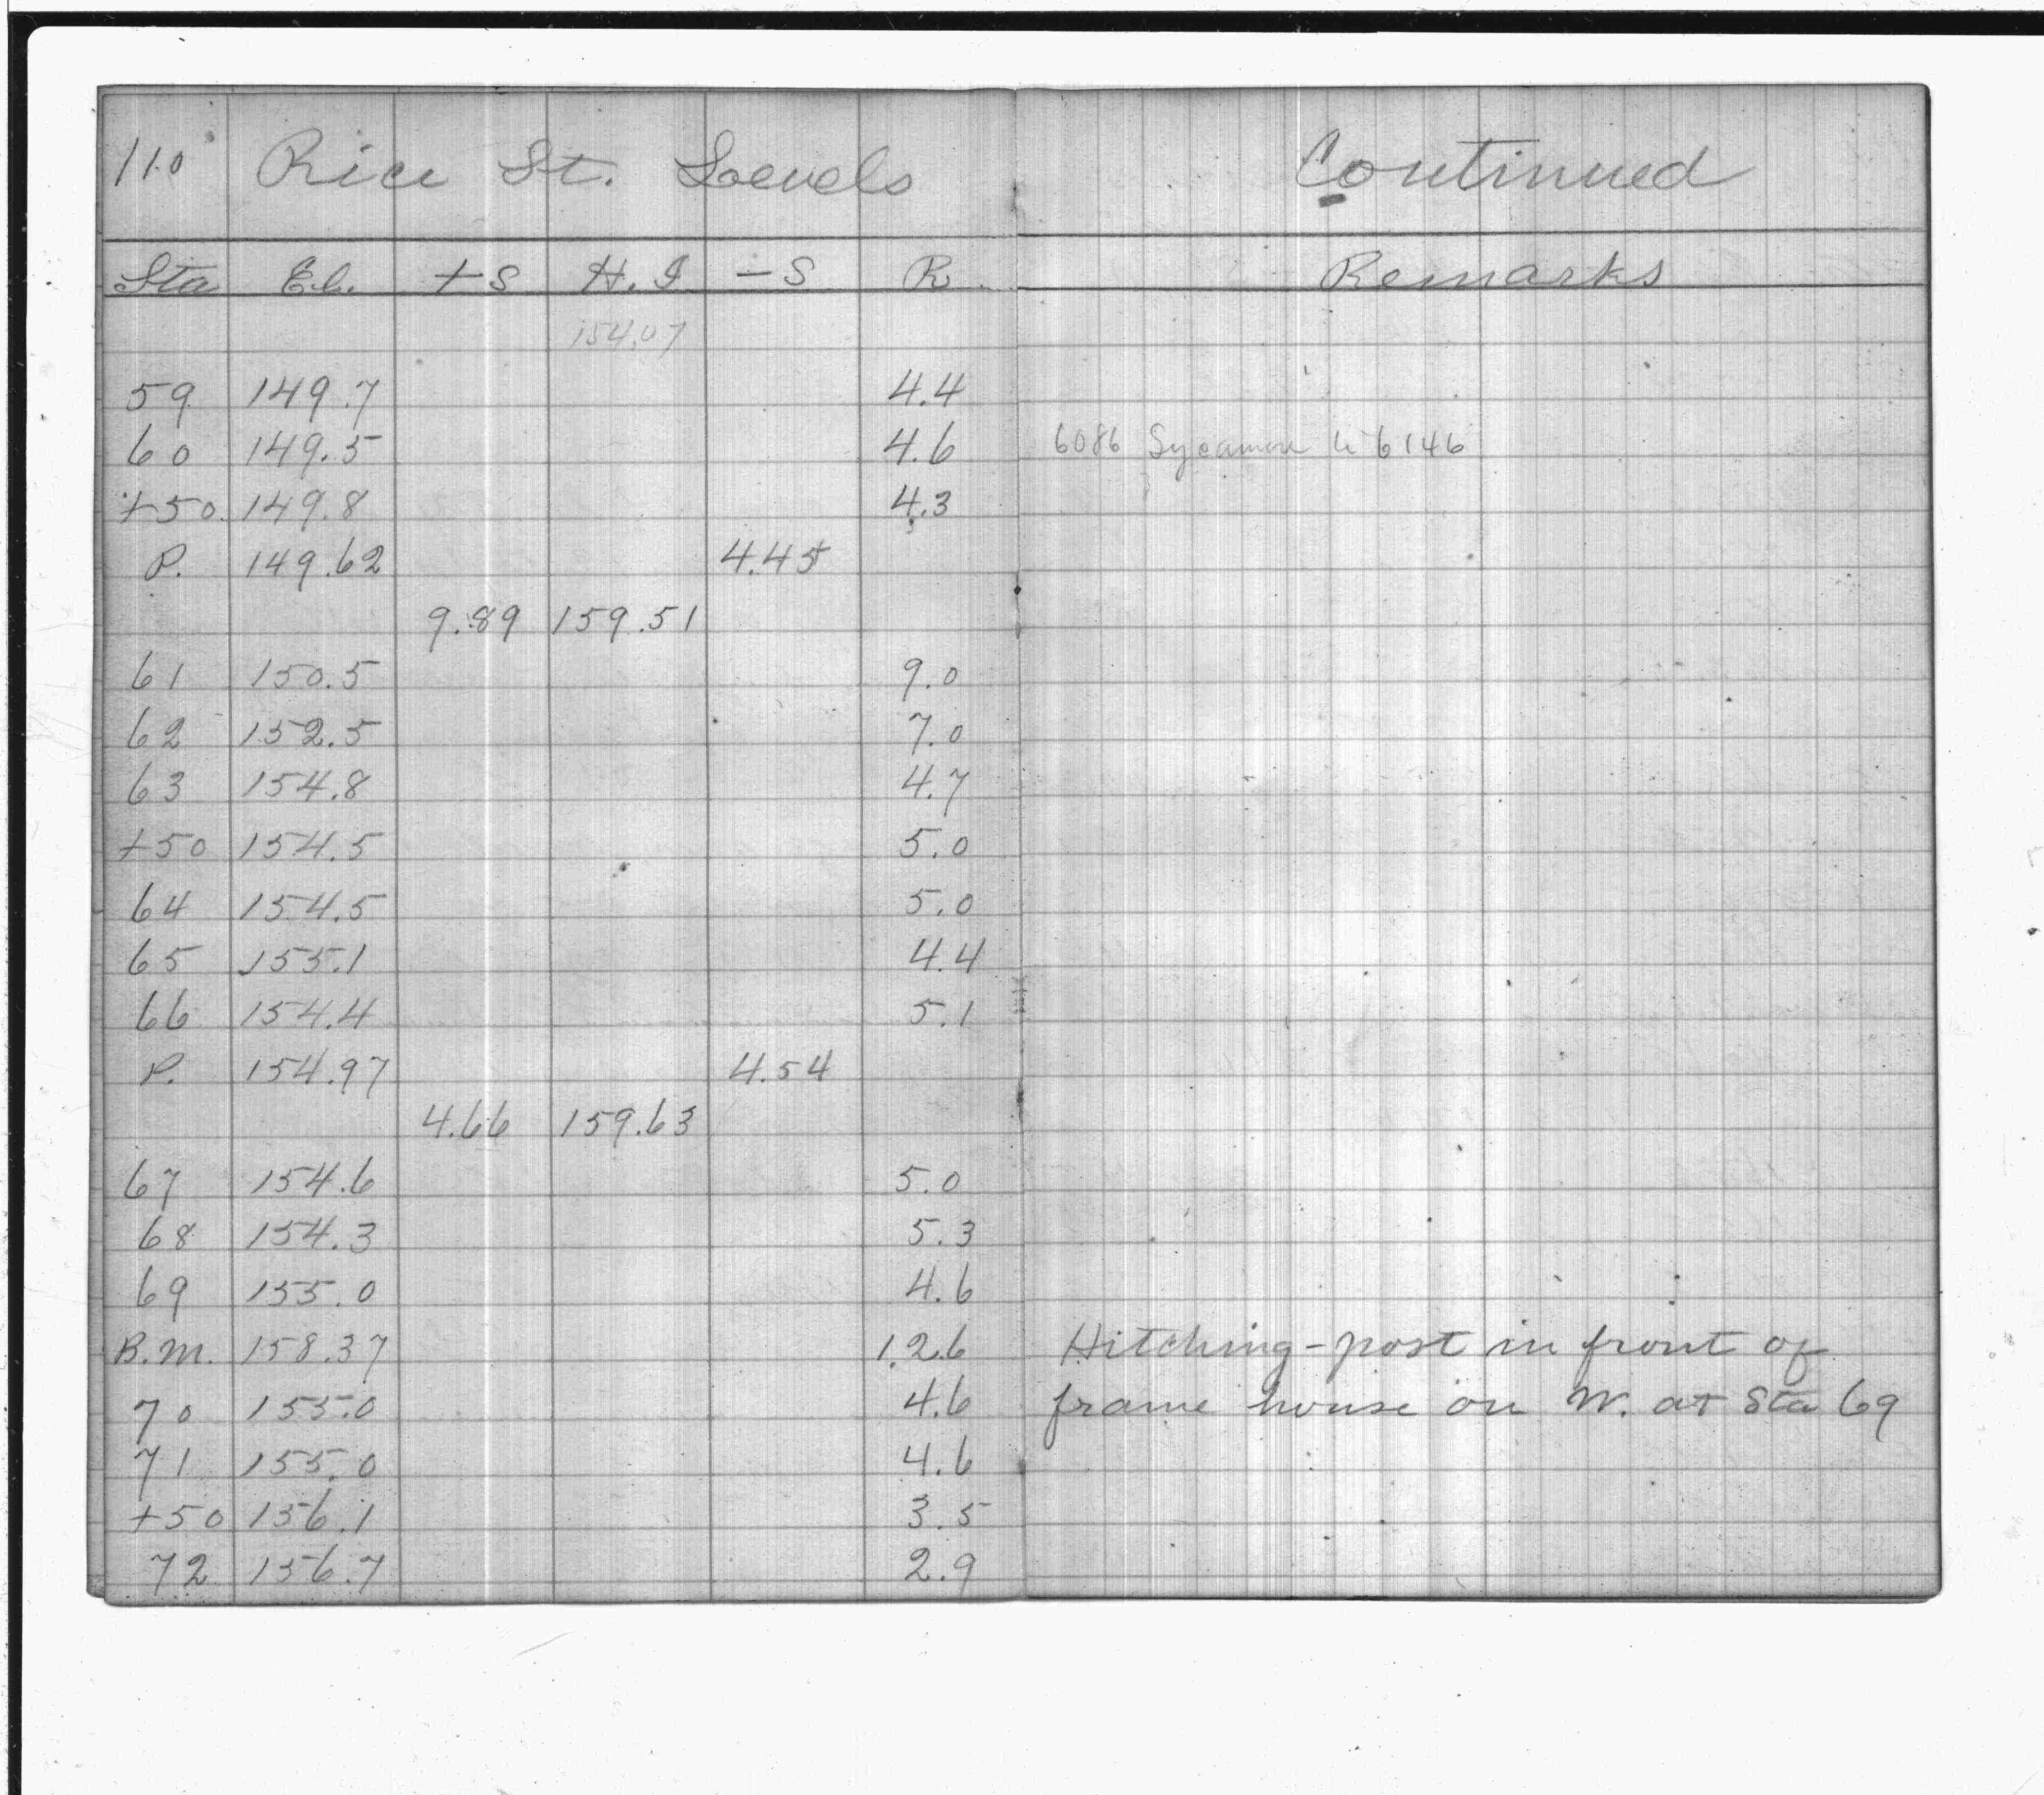 110 Rice St. Levels Continued
Sta El. +S H.I -S R Remarks
154.07
59 149.7 4.4
60 149.5 4.6 6086 Sycamore 6146
+50 149.8 4.3
P. 149.62 4.45
9.89 159.51
61 150.5 9.0
62 152.5 7.0
63 154.8 4.7
+50 154.5 5.0
64 154.5 5.0
65 155.1 4.4
66 154.4 5.1
P. 154.97 4.54
4.66 159.63
67 154.6 5.0
68 154.3 5.3
69 155.0 4.6
B.M. 158.37 1.26 Hitching-post in front of
70 155.0 4.6 frame house on W. at Sta 69
71 155.0 4.6
+50 156.1 3.5
72 156.7 2.9